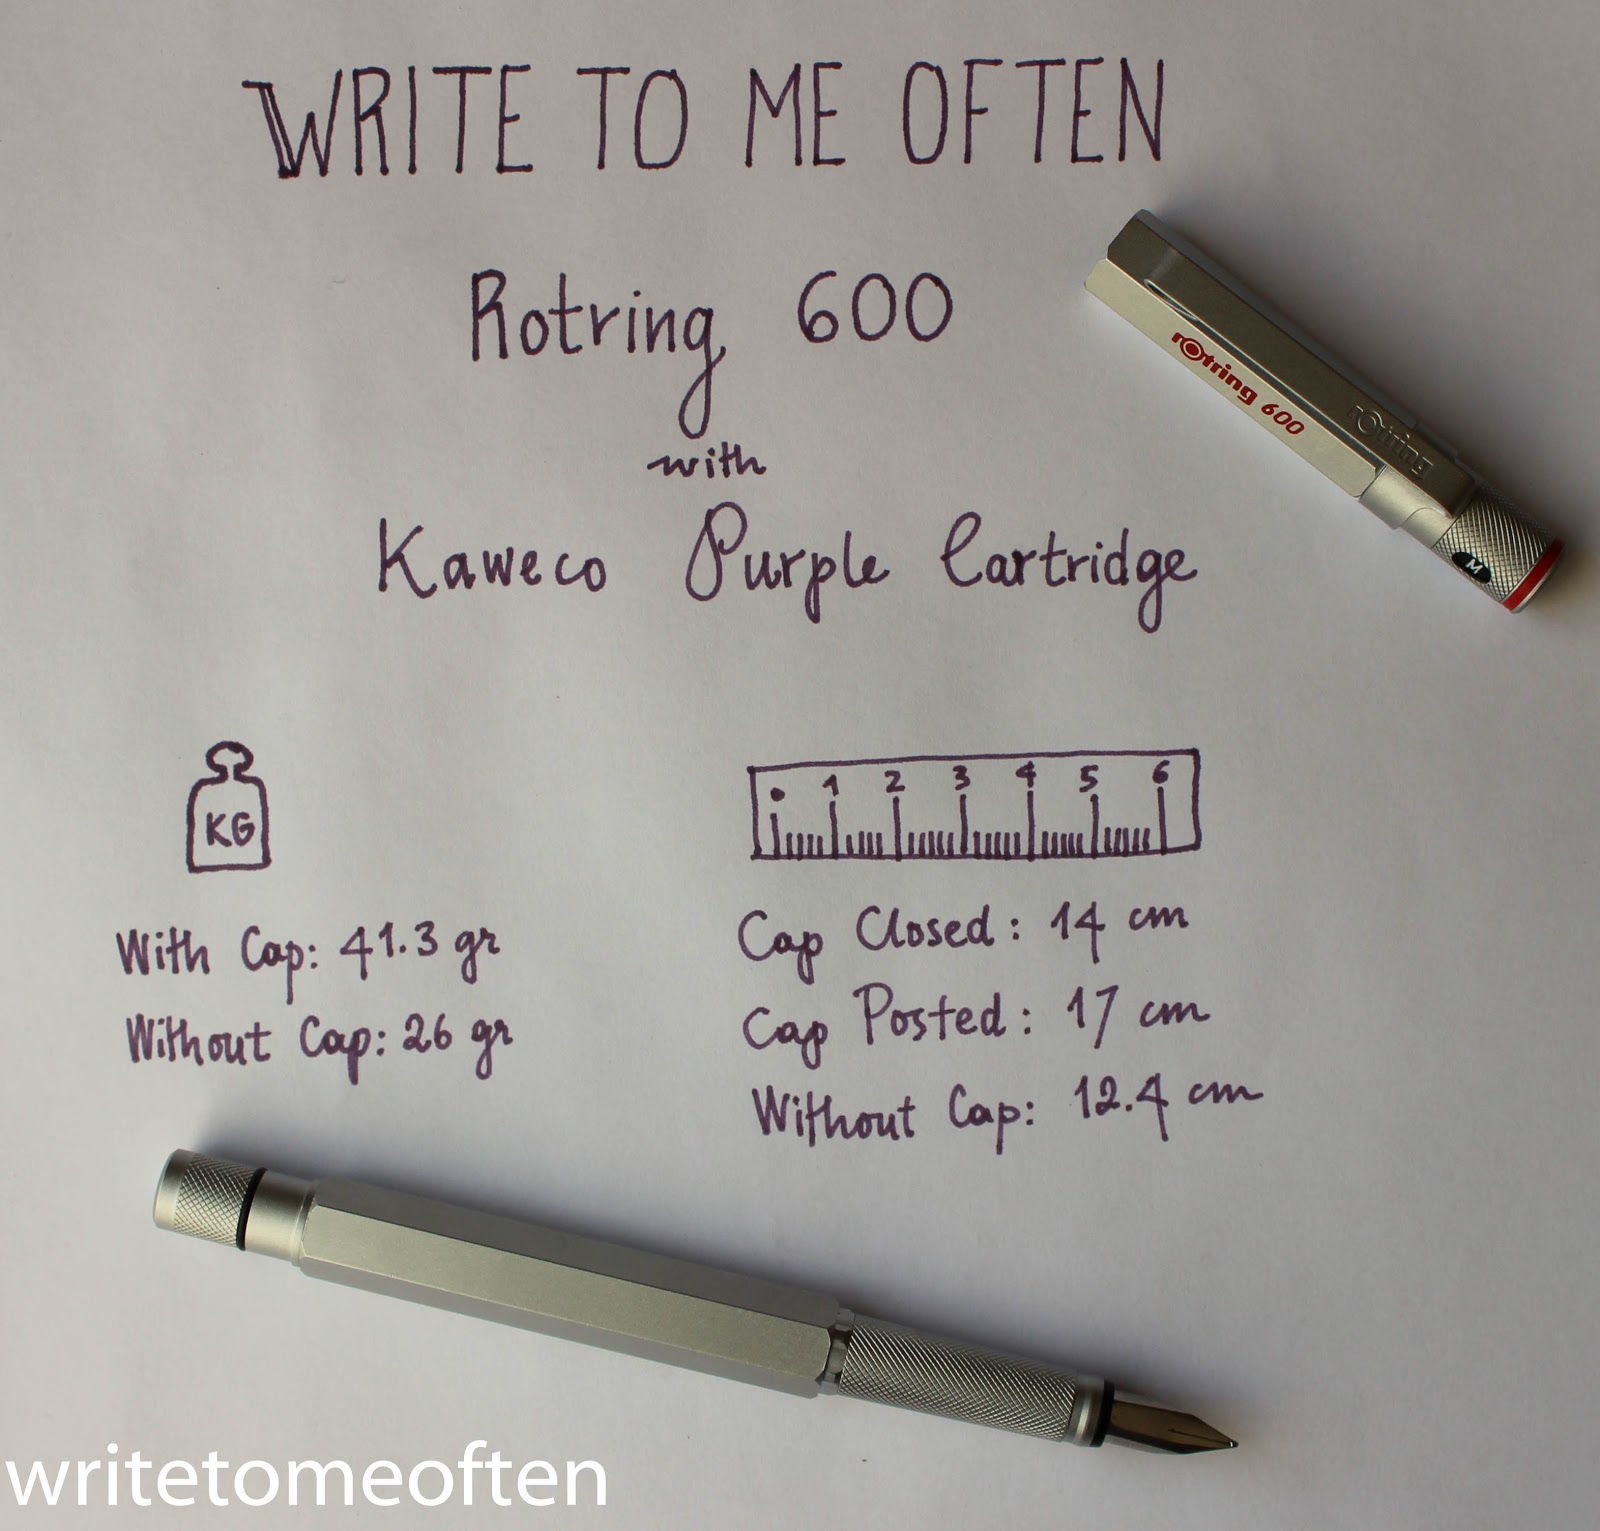 WRITE TO ME OFTEN
Rotring 600
rotring 600
rotring
M
with
Kaweco Purple Cartridge
KG
0 1 2 3 4 5 6
With Cap: 41.3 gr
Without Cap: 26 gr
Cap Closed: 14 cm
Cap Posted: 17 cm
Without Cap: 12.4 cm
writetomeoften